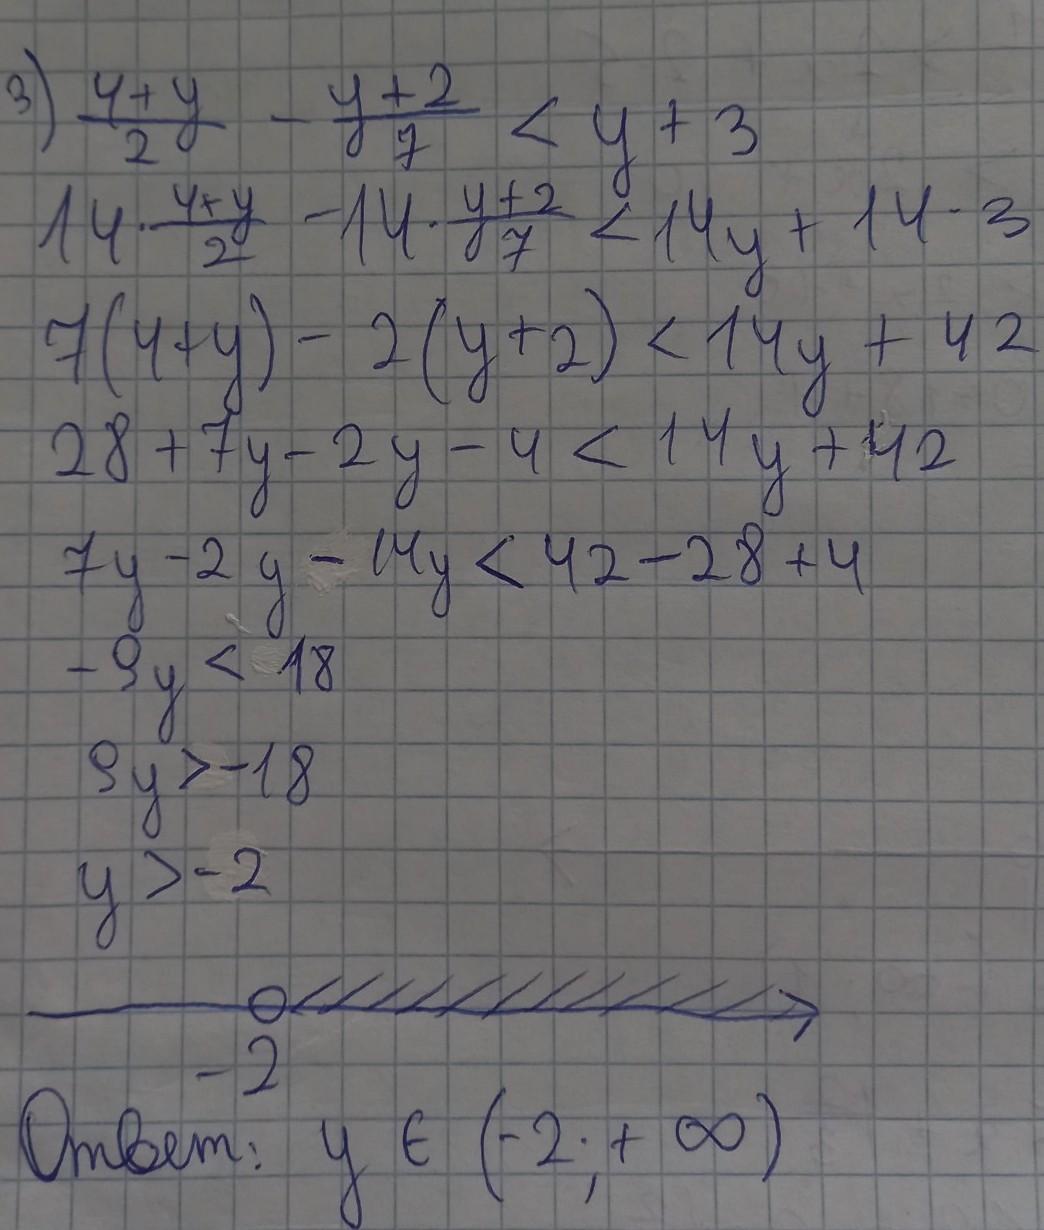 3) (4+y)/2 - (y+2)/7 < y + 3
14 · (4+y)/2 - 14 · (y+2)/7 < 14y + 14 · 3
7(4+y) - 2(y+2) < 14y + 42
28 + 7y - 2y - 4 < 14y + 42
7y - 2y - 14y < 42 - 28 + 4
-9y < 18
9y > -18
y > -2
-2
Ответ: y ∈ (-2; + ∞)